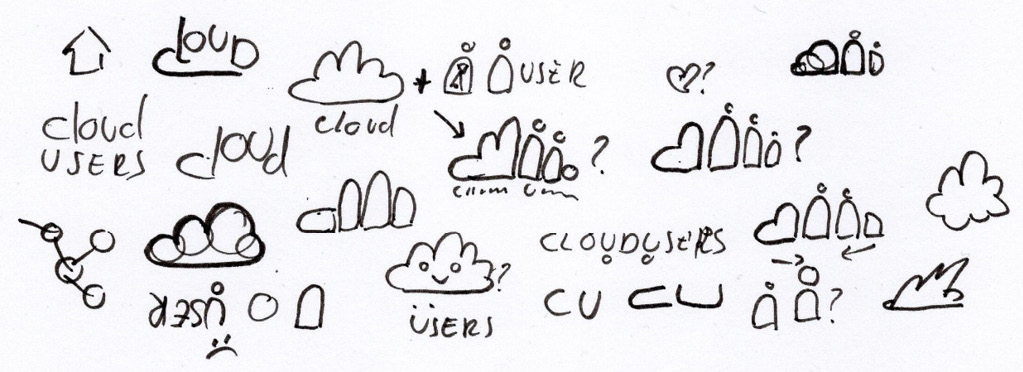 cloud
+
USER
?
cloud
cloud
USERS
cloud
?
?
CLOUDUSERS
?
USER
ÜSERS
CU
CU
?